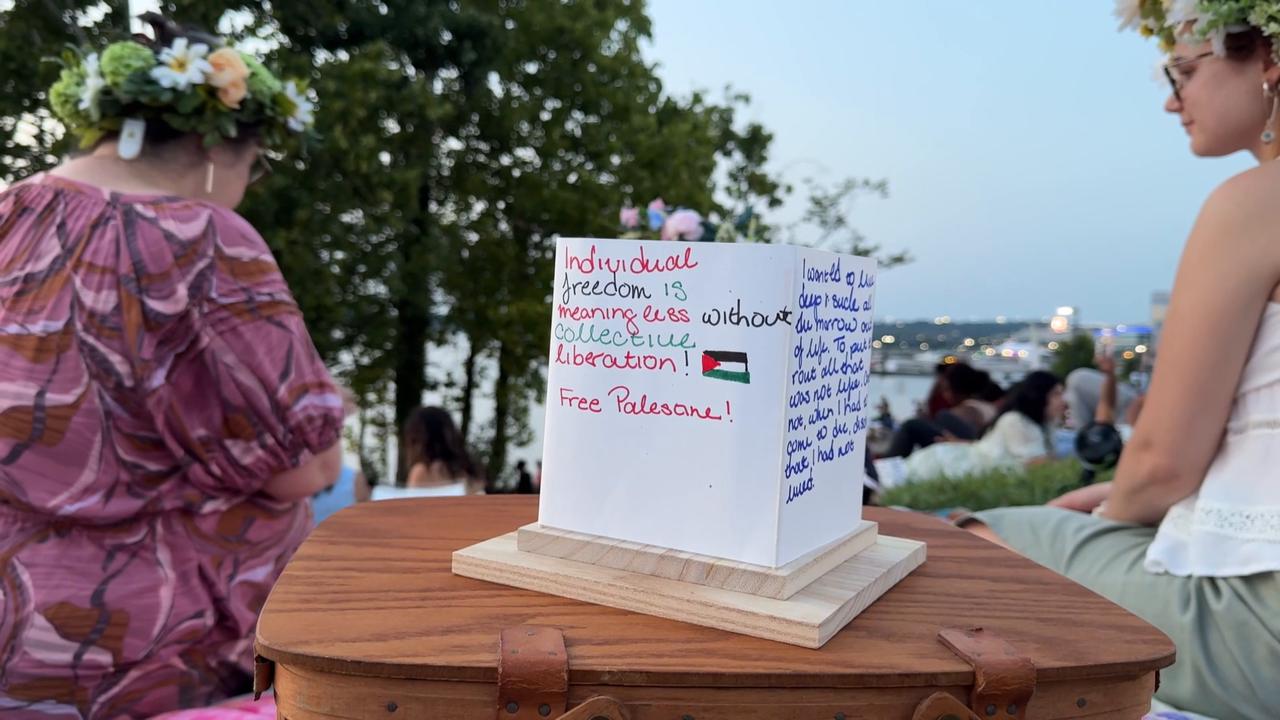 Individual
freedom is
meaningless without
collective
liberation!
Free Palesane!
I wanted to
deep & suck all
the marrow
of life. To put
rout all that
was not life.
not, when I had
come to die,
that, I had not
lived.